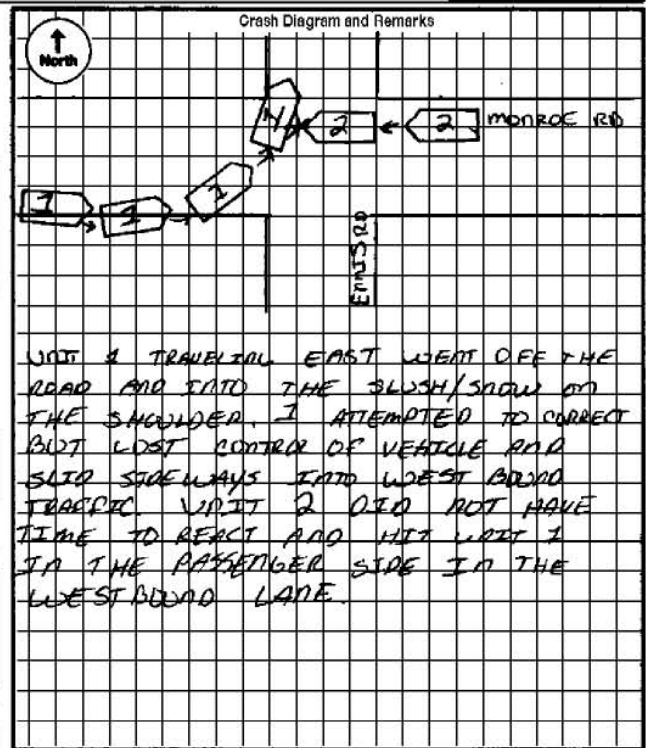 Crash Diagram and Remarks
North
1
1
1
1
2
2
MONROE RD
ENNIS RD
UNIT 1 TRAVELING EAST WENT OFF THE
ROAD AND INTO THE SLUSH/SNOW ON
THE SHOULDER. 1 ATTEMPTED TO CORRECT
BUT LOST CONTROL OF VEHICLE AND
SLID SIDEWAYS INTO WEST BOUND
TRAFFIC. UNIT 2 DID NOT HAVE
TIME TO REACT AND HIT UNIT 1
IN THE PASSENGER SIDE IN THE
WESTBOUND LANE.